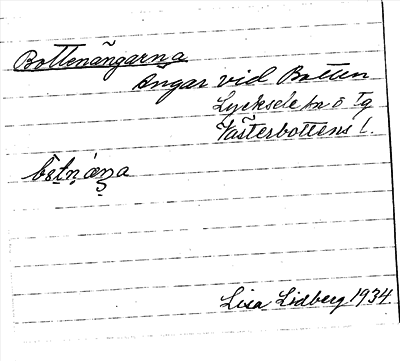 Bottenängarna
Ängar vid Botten
Lycksele sn o Tg
Västerbottens l.
Lisa Lidberg 1934